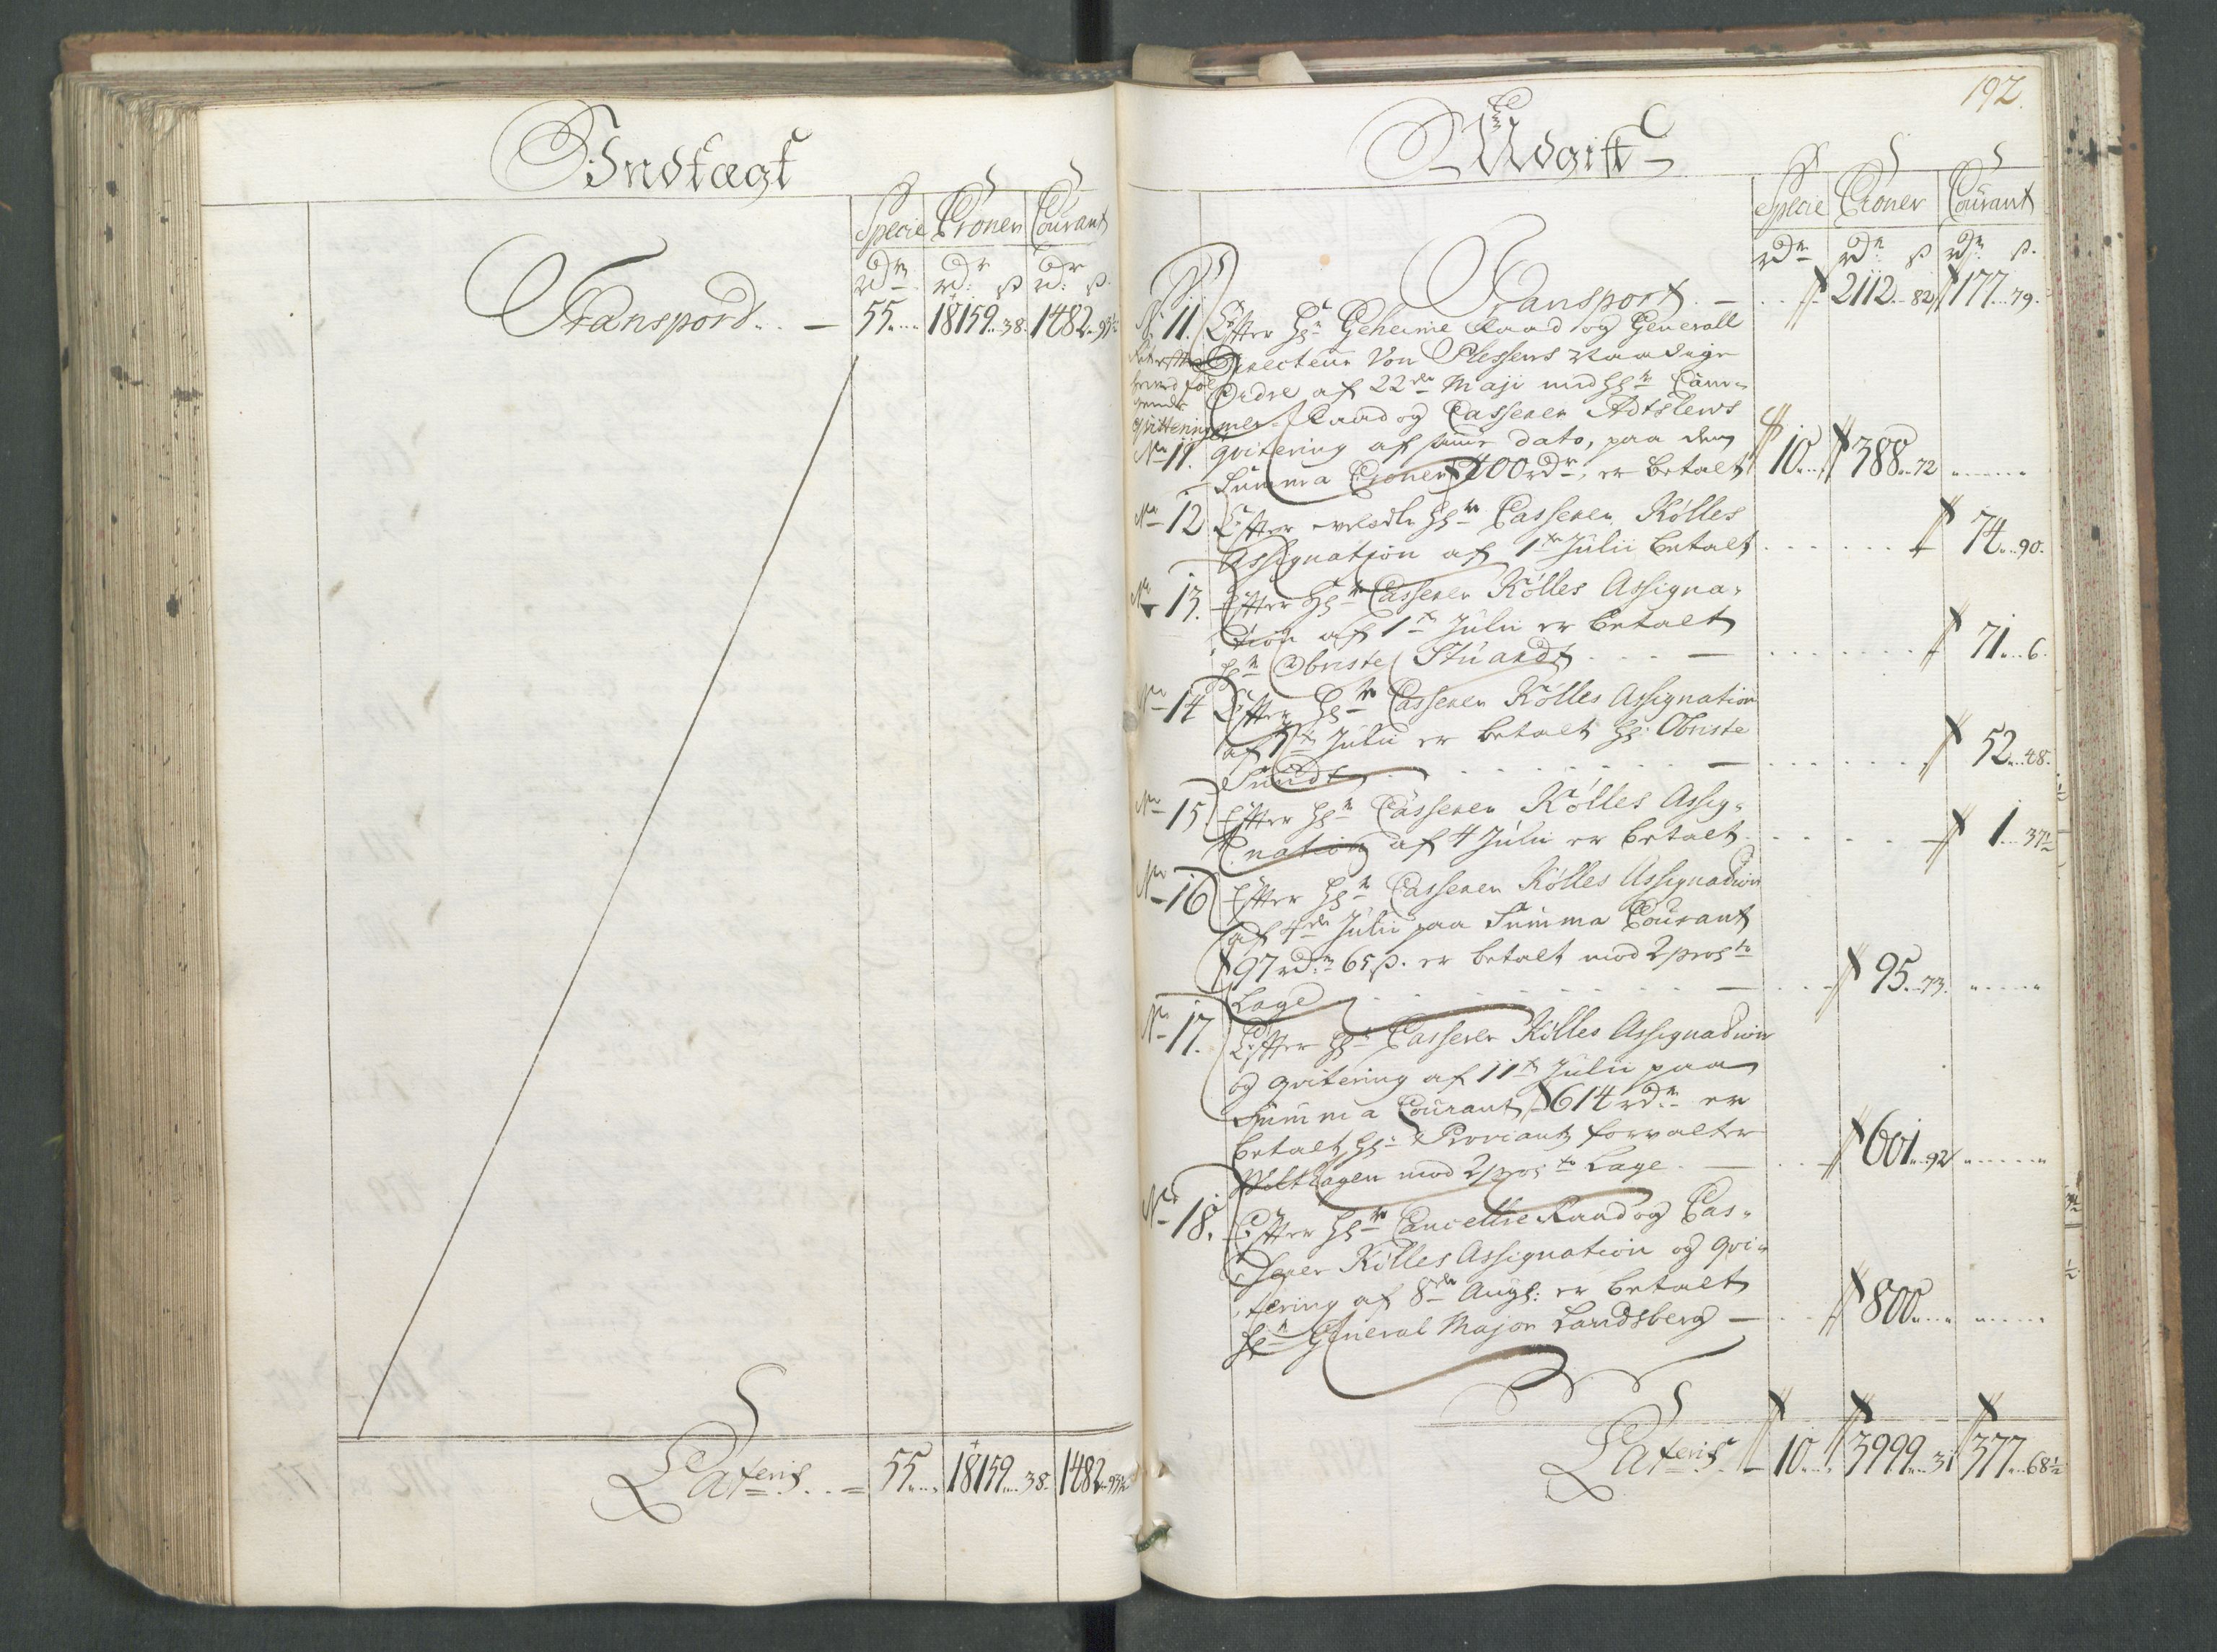 Indtægt
Specie Croner Courant
rdr rdr ß rdr ß.
Transport . . — 55 . . . 18159 . . 38. 1482 . . 93½
Lateris . . = 55 . . . 18159 . . . 38. 1482 . . 93½
192.
Udgift
Specie Croner Courant
rdr rdr ß rdr ß.
Transport . — . . 2112 . . 82 177 . . 79.
No 11. Effter Hr Geheime Raad og Generall
Directeur Von Plessens Naadige
Ordre af 22de Maji med Hr Cam-
mer-Raad og Casserer Adtslews
qvitering af samme dato, paa den
Summa Croner 400 rdr, er betalt 10 . . . 388 . . 72 . . . .
hermed føl
gende
qvittering
No 11.
No 12 Effter welædle Hr Casserer Kølles
Assignation af 1te Julii betalt . . . . . . 74 . . 90.
No 13. Effter Hr Casserer Kølles Assigna-
tion af 1te Julii er betalt
Hr Obriste Stuardt . . . — . . . . . . . 71 . . . 6.
No 14 Effter Hr Casserer Kølles Assignation
af 1te Julii er betalt Hr: Obriste
Sundt . . . . . . . . . — . . . . . . 52 . . 48.
No 15. Effter Hr Casserer Kølles Assig-
nation af 4 Julii er betalt . . . . . 1 . . . 37½
No 16 Effter Hr Casserer Kølles Assignation
af 4de Julii paa Summa Courant
97 rdr 65 ß. er betalt mod 2 procto
Lage . . . . . . . . — . . . 95 . . 73. . . . . .
No 17. Effter Hr Casserer Kølles Assignation
og qvitering af 11te Julii paa
Summa Courant 614 rdr er
betalt Hr: Proviant forvalter
Wilthagen mod 2 procto Lage . — . . . 601 . . 92 . . . . . .
No 18. Effter Hr Cancellie Raad og Cas-
serer Kølles Assignation og qvi-
tering af 8de Augs: er betalt
Hr General Major Landsberg — . . 800 . . . . . . . . .
Lateris — 10 . . . . 3999 . . . 31 377 . . 68½